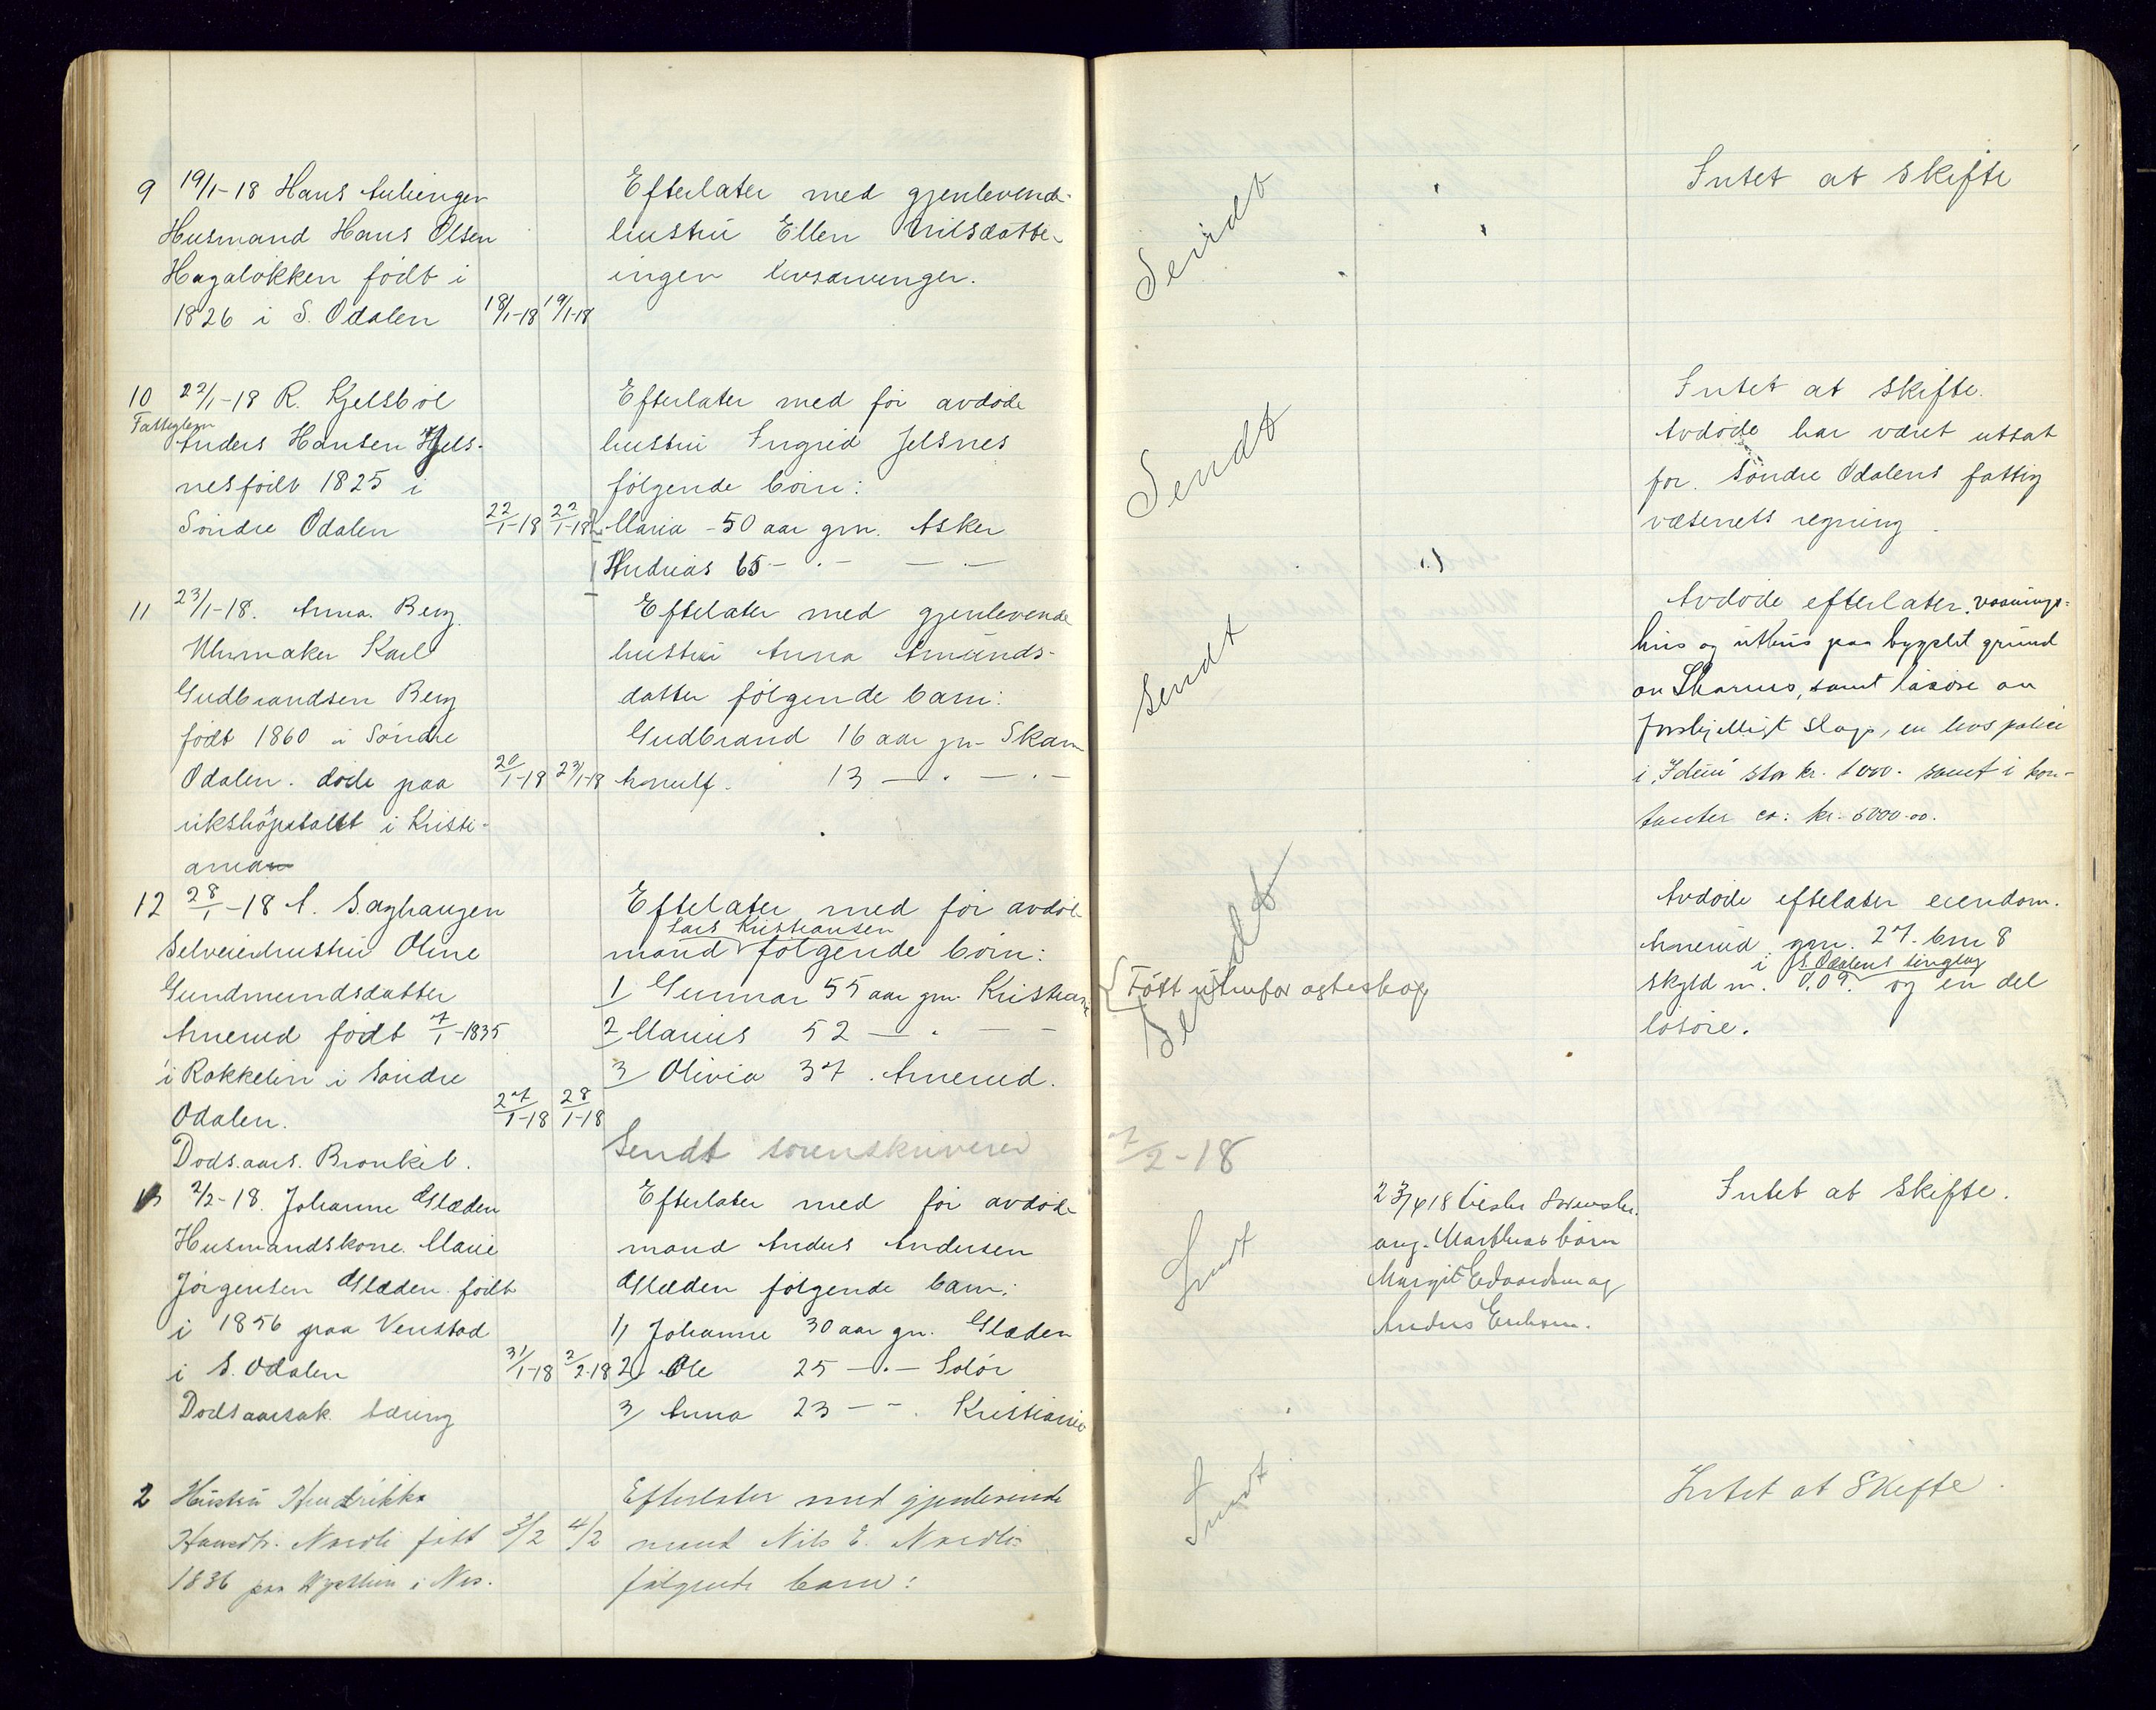 9 19/1-18 Hans
Husmand Hans Olsen
Hagaløkken födt i
1826 i S. Odalen 18/1-18 19/1-18
Efterlater med gjenlevende
hustru Ellen Nilsdatter
ingen livsarvinger.
Sendt
Intet at skifte
10 22/1-18 R. Kjelsböl
Fattiglem
Anders Hansen Hjels-
nes födt 1825 i
Söndre Odalen 22/1-18 22/1-18
Efterlater med för avdöde
hustru Ingrid Jelsnes
fölgende börn:
2 Maria - 50 aar gm. Asker
1 Andreas 65 - . - — . —
Sendt
Intet at skifte.
Avdöde har været utsat
for Söndre Odalens fattig
væsenets regning.
11 23/1-18. Anna Berg
Uhrmaker Karl
Gudbrandsen Berg
födt 1860 i Söndre
Odalen. döde paa 20/1-18 23/1-18
rikshospitalet i Kristi-
ania
Eftelater med gjenlevende
hustru Anna Amunds-
datter fölgende barn:
Gudbrand 16 aar gm. Skarn
Arnulf. 13 — . — . —
Sendt
Avdöde efterlater vaanings-
hus og uthus paa bygslet grund
av Skarnes, samt lösöre av
forskjelligt slags, en livs police
i "Idun" stor kr. 1000. samt i kon-
tanter ca: kr. 6000.00.
12 28/1-18 A. Saghaugen
Selveierhustru Oline
Gundmundsdatter
Arnerud födt 7/1-1835
i Rokkelin i Söndre
Odalen. 27/1-18 28/1-18
Döds.aars. Bronkit.
Eftelater med för avdöde
Lars Kristiansen
mand fölgende börn:
1/ Gunnar 55 aar gm. Kristiania
2 Marius 52 — . — —
3/ Olivia 37 . Arnerud.
Sendt sorenskriveren 7/2-18
{Fött utenfor egteskap
Sendt
Avdöde eftelater eiendom.
Arnerud gm. 27. bm 8
i S. Odalens tinglag
skyld m. 0,09. og en del
lösöre.
13 2/2-18. Johanne Glæden
Husmandskone. Marie
Jörgensen Glæden. födt
i 1856 paa Venstad
i S. Odalen 31/1-18 2/2-18
Dödsaarsak. tæring
Efterlater med för avdöde
mand Anders Andersen
Glæden fölgende barn:
1/ Johanne 30 aar gm. Glæden
2/ Ole 25 — . — Solör
3/ Anna 23 — - . Kristiania
Sendt
23/4 18 Sorenskr.
ang. Marthas börn
Margit Edvardsen og
Anders Eriksen.
Intet at skifte.
2 Hustru Hendrikke
Hansdtr. Nordli fött 3/2 4/2
1836 paa i Nes.
Efterlater med gjenlevende
mand Nils E. Nordli
fölgende barn:
Sendt
Intet at skifte.